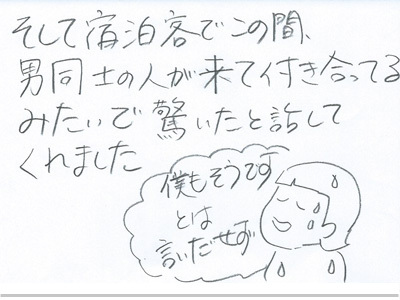 そして宿泊客でこの間、
男同士の人が来て付き合ってる
みたいで驚いたと話して
くれました
僕もそうです
とは
言いだせず